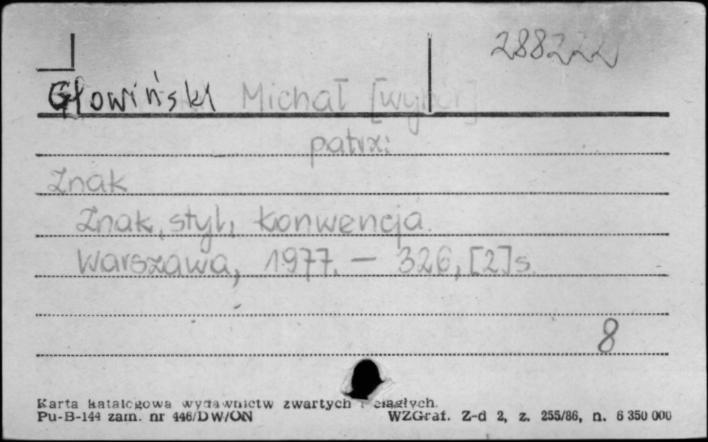 288222
Głowiński Michał [wybór]
patrz:
Znak
Znak, styl, konwencja.
Warszawa, 1977. — 326, [2] s.
8
Karta katalogowa wydawnictw zwartych i ciągłych.
Pu-B-144 zam. nr 446/DW/ON WZGraf. Z-d 2, z. 255/86, n. 6 350 000